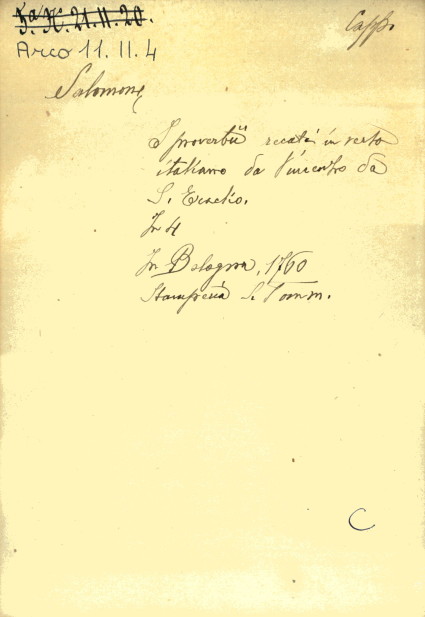 5ª K. 21. 11. 20.
Capp.
Arco 11. 11. 4
Salomone
I proverbii recati in verso
italiano da Vincenzo da
S. Eraclio.
In 4
In Bologna, 1760
Stamperia S. Tomm.
C